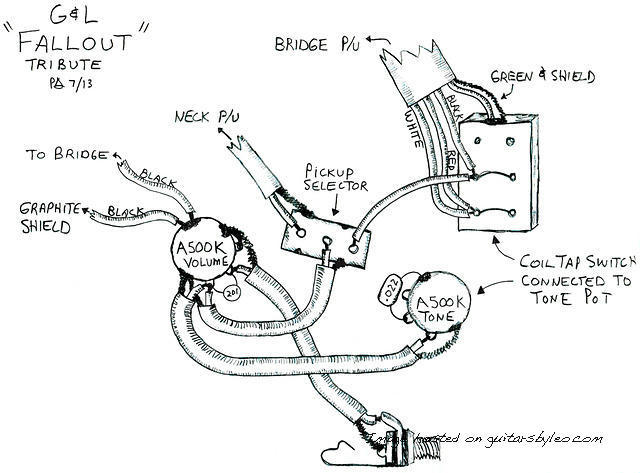 G&L
"FALLOUT"
TRIBUTE
PA 7/13
BRIDGE P/U
GREEN & SHIELD
BLACK
WHITE
RED
NECK P/U
PICKUP
SELECTOR
TO BRIDGE
BLACK
GRAPHITE
SHIELD
BLACK
A500K
VOLUME
201
.022
A500K
TONE
COIL TAP SWITCH
CONNECTED TO
TONE POT
Image hosted on guitarsbyleo.com